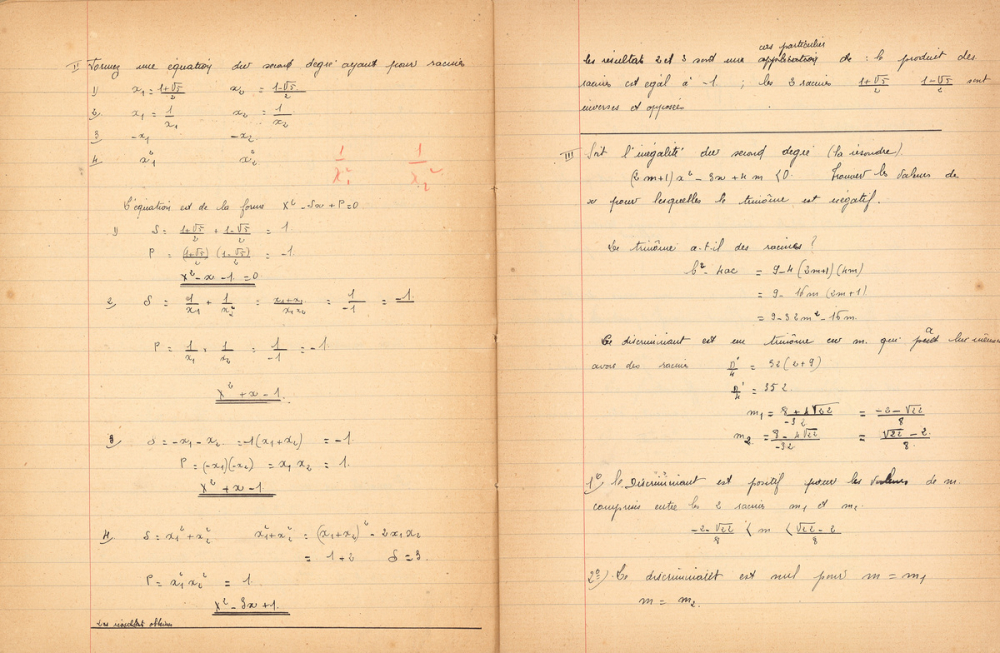 II Formez une équation du second degré ayant pour racines
1) x₁ = 1+√5/2 x₂ = 1-√5/2
2) x₁ = 1/x₁ x₂ = 1/x₂
3 -x₁ -x₂
4. x₁² x₂² 1/x₁² 1/x₂²
L'équation est de la forme X² - Sx + P = 0
1) S = 1+√5/2 + 1-√5/2 = 1
P = (1+√5/2) (1-√5/2) = -1.
X² - x - 1 = 0
2) S = 1/x₁ + 1/x₂ = x₁+x₂/x₁x₂ = 1/-1 = -1.
P = 1/x₁ × 1/x₂ = 1/-1 = -1
X² + x - 1.
3 S = -x₁ - x₂ = -1(x₁+x₂) = -1.
P = (-x₁)(-x₂) = x₁ x₂ = 1.
X² + x - 1
4. S = x₁² + x₂² x₁² + x₂² = (x₁+x₂)² - 2x₁x₂
= 1+2 S = 3.
P = x₁² x₂² = 1.
X² - 3x + 1.
Les résultats obtenus
cas particulier
les résultats 2 et 3 sont une application de : le produit des
racines est égal à -1. ; les 2 racines 1+√5/2 1-√5/2 sont
inverses et opposés
III Soit l'inégalité du second degré (la résoudre).
(2m+1)x² - 3x + 4m < 0. Trouver les valeurs de
x pour lesquelles le trinôme est négatif.
Le trinôme a-t-il des racines ?
b² - 4ac = 9-4(2m+1)(4m)
= 9 - 16m (2m+1)
= 9-32m² - 16m.
Ce discriminant est un trinôme en m. qui a
avoir des racines Δ'/4 = 32(2+9)
Δ'/4 = 352
m₁ = 8+4√22/-32 = -2-√22/8
m₂ = 8-4√22/-32 = √22-2/8.
1º) le Discriminant est positif pour les valeurs de m.
compris entre les 2 racines m₁ et m₂
-2-√22/8 < m < √22-2/8
2º) Ce discriminant est nul pour m = m₁
m = m₂.